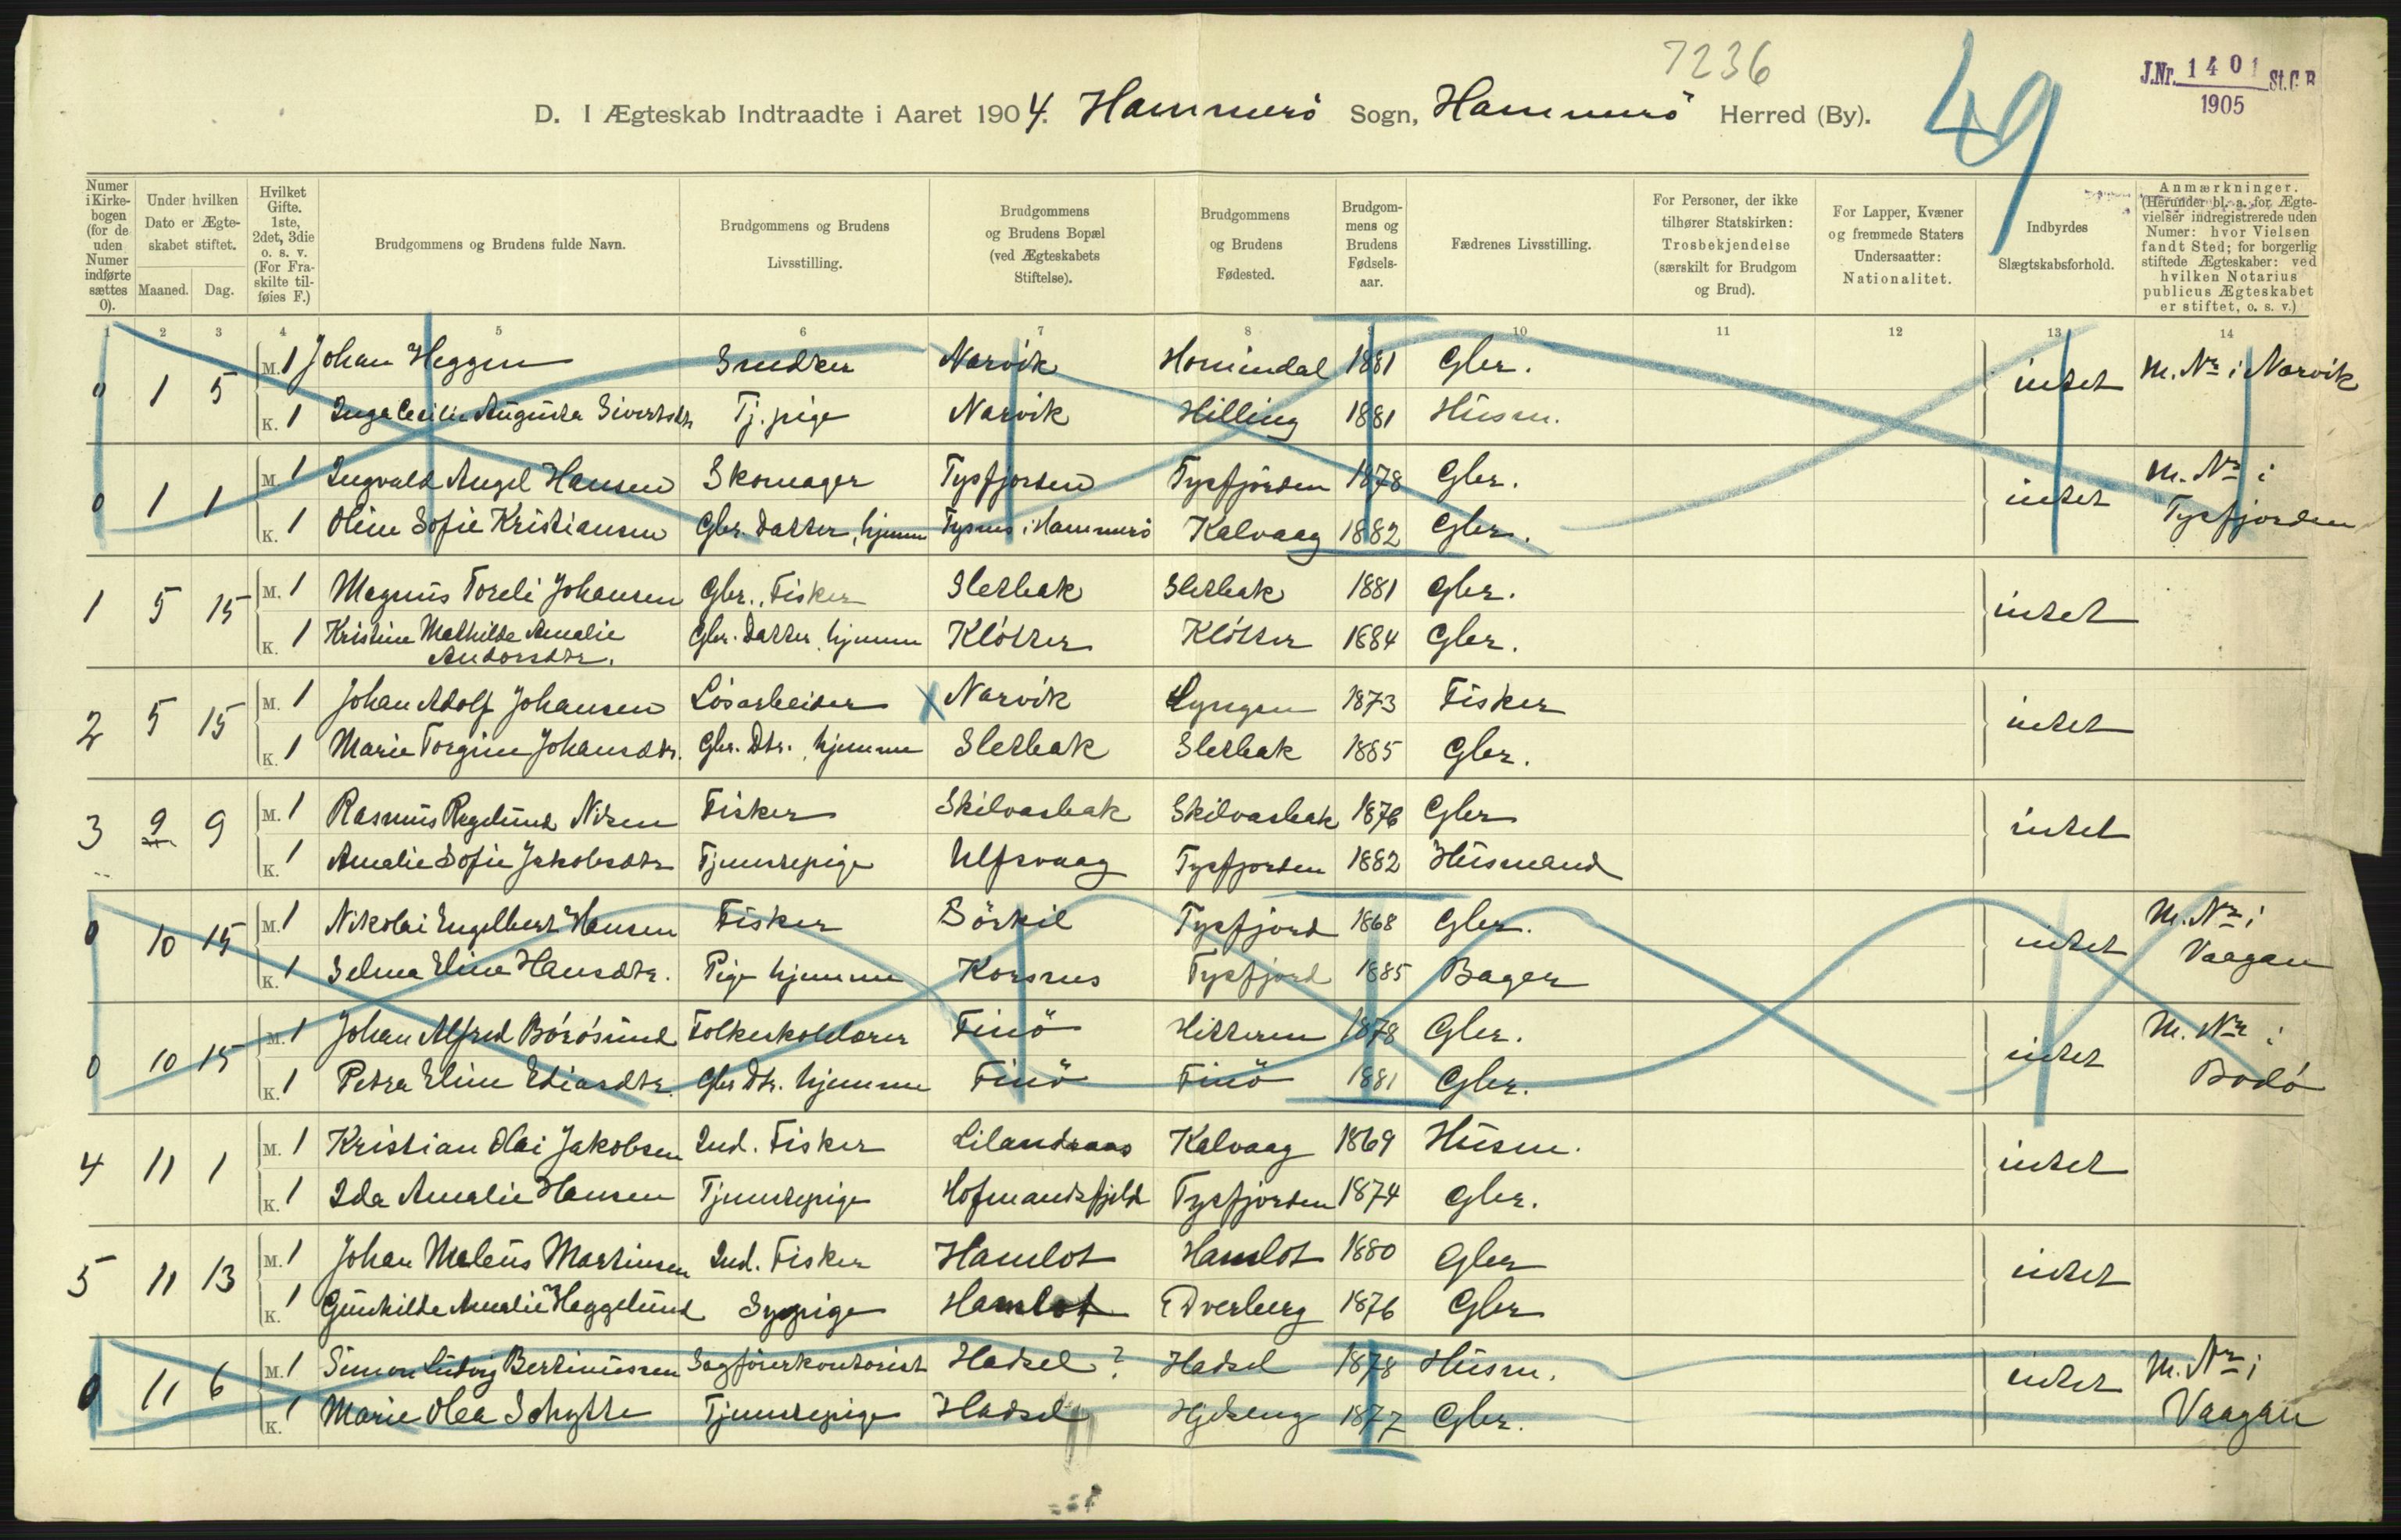 7236
49
J.Nr. 1401 St.C.B
1905
D. I Ægteskab Indtraadte i Aaret 1904. Hammerö Sogn, Hammerö Herred (By).
Numer i Kirkebogen (for de uden Numer indførte sættes 0).
Under hvilken Dato er Ægteskabet stiftet.
Maaned. Dag.
Hvilket Gifte. 1ste, 2det, 3die o. s. v. (For Fraskilte tilføies F.)
Brudgommens og Brudens fulde Navn.
Brudgommens og Brudens Livsstilling.
Brudgommens og Brudens Bopæl (ved Ægteskabets Stiftelse).
Brudgommens og Brudens Fødested.
Brudgommens og Brudens Fødselsaar.
Fædrenes Livsstilling.
For Personer, der ikke tilhører Statskirken: Trosbekjendelse (særskilt for Brudgom og Brud).
For Lapper, Kvæner og fremmede Staters Undersaatter: Nationalitet.
Indbyrdes Slægtskabsforhold.
Anmærkninger. (Herunder bl. a. for Ægtevielser indregistrerede uden Numer: hvor Vielsen fandt Sted; for borgerlig stiftede Ægteskaber: ved hvilken Notarius publicus Ægteskabet er stiftet, o. s. v.)
1 2 3 4 5 6 7 8 9 10 11 12 13 14
0 1 5 M. 1 Johan Heggen Snedker Narvik Hornindal 1881 Gbr. intet M. Nr i Narvik
K. 1 Inga Cecilie Augusta Sivertsdtr Tj. pige Narvik Hilling 1881 Husm.
0 1 1 M. 1 Ingvald Angel Hansen Skomager Tysfjorden Tysfjorden 1878 Gbr. intet M. Nr i Tysfjorden
K. 1 Oline Sofie Kristiansen Gbr. Datter, hjemme Tysnes i Hammerö Kalvaag 1882 Gbr.
1 5 15 M. 1 Magnus Toreli Johansen Gbr., Fisker Sletbak Sletbak 1881 Gbr. intet
K. 1 Kristine Mathilde Amalie Andorsdtr. Gbr. Datter, hjemme Kløtter Kløtter 1884 Gbr.
2 5 15 M. 1 Johan Adolf Johansen Løsarbeider x Narvik Lyngen 1873 Fisker intet
K. 1 Marie Torgine Johansdtr. Gbr. Dtr., hjemme Sletbak Sletbak 1885 Gbr.
3 9 9 M. 1 Rasmus Regelund Nilsen Fisker Skilvasbak Skilvasbak 1876 Gbr intet
K. 1 Amalie Sofie Jakobsdtr Tjenestepige Ulfsvaag Tysfjorden 1882 Husmand
0 10 15 M. 1 Nikolai Engelbert Hansen Fisker Börkil Tysfjord 1868 Gbr. intet M. Nr i Vaagan
K. 1 Selma Eline Hansdtr. Pige hjemme Korsnes Tysfjord 1885 Bager
0 10 15 M. 1 Johan Alfred Børøsund Folkeskolelærer Finö Hitteren 1878 Gbr. intet M. Nr i Bodø
K. 1 Petra Eline Ediasdtr. Gbr Dtr. hjemme Finö Finö 1881 Gbr.
4 11 1 M. 1 Kristian Olai Jakobsen Ind. Fisker Lilandsaas Kalvaag 1869 Husm. intet
K. 1 Ida Amalie Hansen Tjenestepige Hofmandsfjeld Tysfjorden 1874 Gbr.
5 11 13 M. 1 Johan Maleus Martinsen Ind. Fisker Hamlot Hamlot 1880 Gbr intet
K. 1 Gunhilde Amalie Heggelund Sypige Hamlot Dverberg 1876 Gbr
0 11 6 M. 1 Simon Ludvig Bertinussen Sagførerkontorist Hadsel? Hadsel 1878 Husm. intet M. Nr i Vaagan
K. 1 Marie Olea Schytte Tjenestepige Hadsel 1877 Gbr.